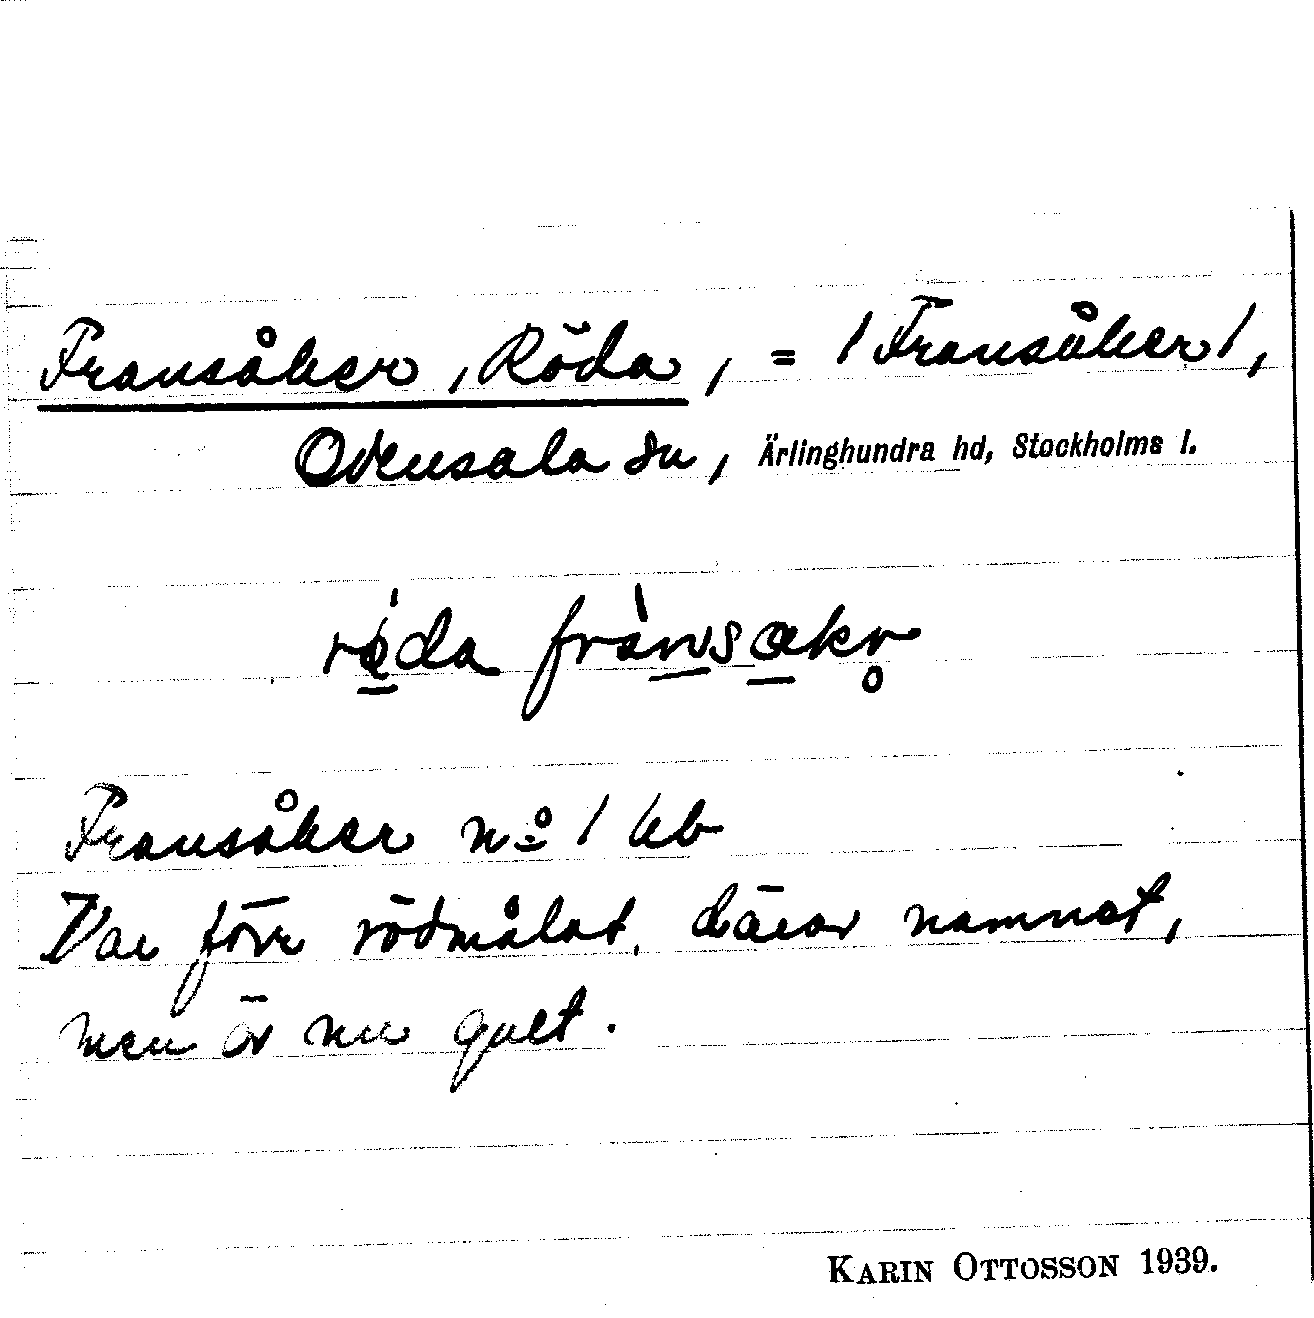 Fransåker, Röda, = /Fransåker/,
Odensala sn, Ärlinghundra hd, Stockholms l.
röda fransåkr
Fransåker nº 1 ub
Var förr rödmålat, därav namnet,
men är nu gult.
KARIN OTTOSSON 1939.